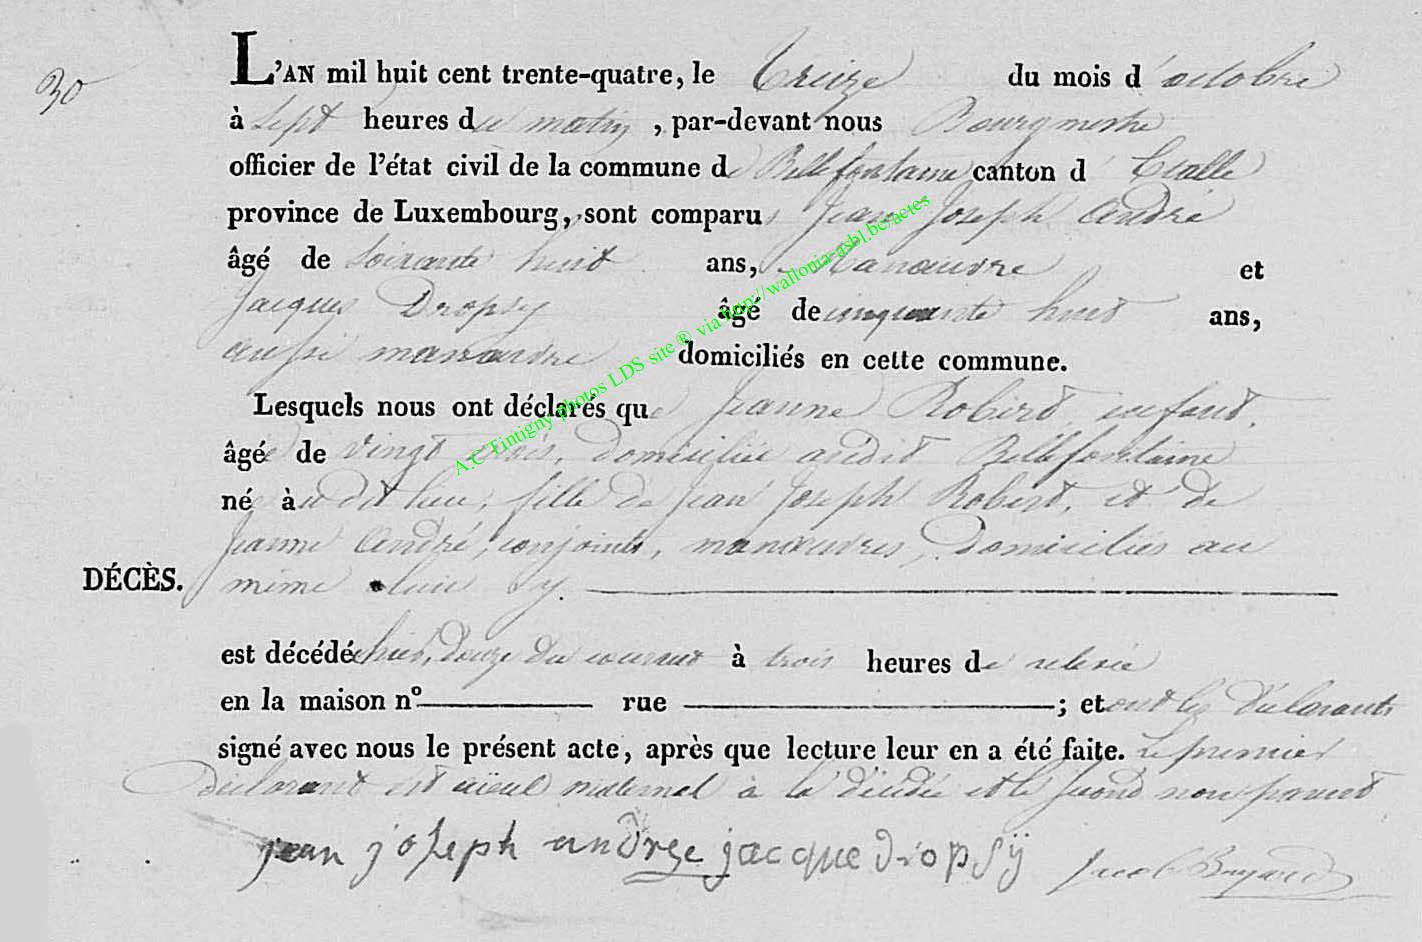 30
L'AN mil huit cent trente-quatre, le Treize du mois d'octobre
à sept heures du matin, par-devant nous Bourgmestre
officier de l'état civil de la commune de Bellefontaine canton d'Etalle
province de Luxembourg, sont comparus Jean Joseph André
âgé de soixante huit ans, Manœuvre et
Jacques Dropsy âgé de cinquante huit ans,
aussi manœuvre domiciliés en cette commune.
Lesquels nous ont déclarés que Jeanne Robert, enfant,
âgée de vingt mois, domiciliée audit Bellefontaine
né à udit lieu, fille de Jean Joseph Robert, et de
Jeanne André, conjoints, manœuvres, Domiciliés au
DÉCÈS. même lieu
est décédé hier, douze du courant à trois heures de relevée
en la maison nº rue ; et ont les Déclarants
signé avec nous le présent acte, après que lecture leur en a été faite. Le premier
Déclarant est aïeul maternel à la Décédée et le second non parent
jean joseph andrze jacque dropsÿ Jacob Buyard
A.C Tintigny photos LDS site ® via http://wallonia-asbl.be/actes